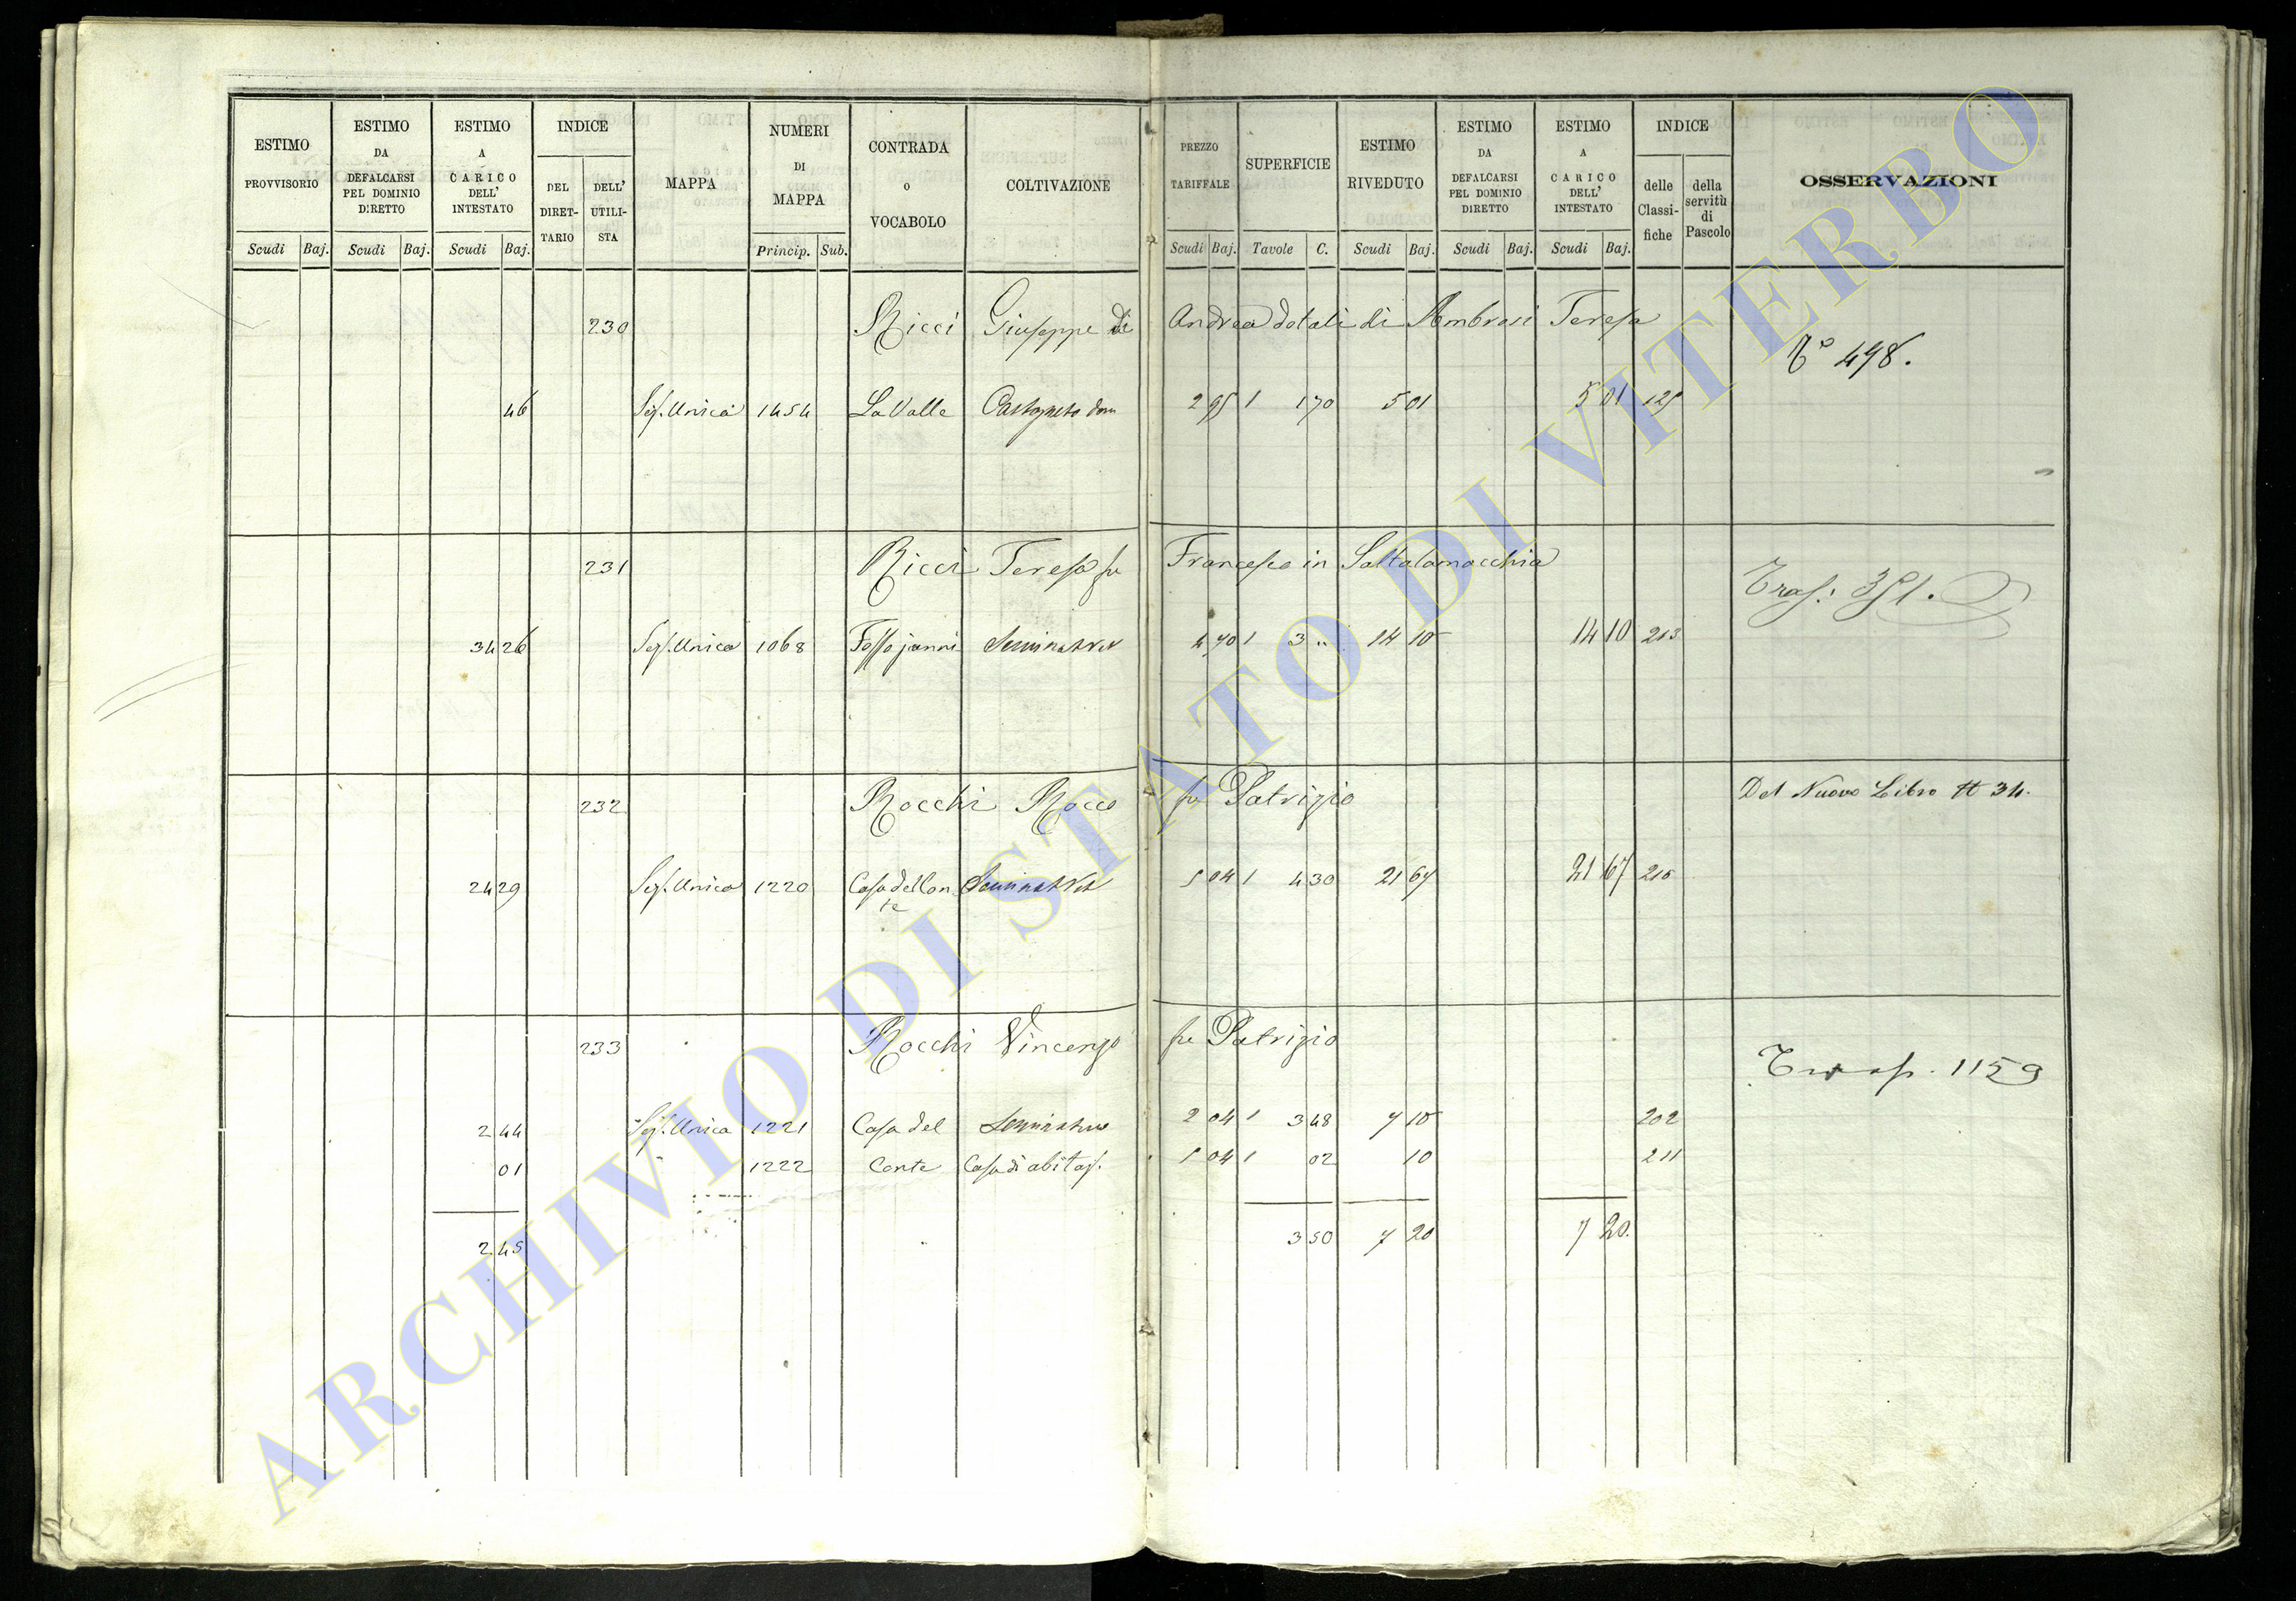 ESTIMO PROVVISORIO Scudi Baj.
ESTIMO DA DEFALCARSI PEL DOMINIO DIRETTO Scudi Baj.
ESTIMO A CARICO DELL' INTESTATO Scudi Baj.
INDICE DEL DIRET-TARIO DELL' UTILI-STA
MAPPA
NUMERI DI MAPPA Princip. Sub.
CONTRADA O VOCABOLO
COLTIVAZIONE
PREZZO TARIFFALE Scudi Baj.
SUPERFICIE Tavole C.
ESTIMO RIVEDUTO Scudi Baj.
ESTIMO DA DEFALCARSI PEL DOMINIO DIRETTO Scudi Baj.
ESTIMO A CARICO DELL' INTESTATO Scudi Baj.
INDICE delle Classi-fiche della servitù di Pascolo
OSSERVAZIONI
230 Ricci Giuseppe di Andrea dotali di Ambrosi Teresa
498.
46 Sez. Unica 1454 La Valle Castagneto dom 2 95 1 1 70 5 01 5 01
231 Ricci Teresa fu Francesco in Saltalamacchia
Trasp: 351.
34 26 Sez. Unica 1068 Fosso janni Seminat Vit 4 70 1 3 " 14 10 14 10 213
232 Rocchi Rocco fu Patrizio
Del Nuovo Libro tt 34.
24 29 Sez. Unica 1220 Casa del Con
te
Seminat Vit 5 04 1 4 30 21 67 21 67 216
233 Rocchi Vincenzo fu Patrizio
Trasp. 1159
2 44 Sez. Unica 1221 Casa del Seminativo 2 04 1 3 48 7 10 202
01 " 1222 Conte Casa di abitaz. 5 04 1 02 10 211
2 45 3 50 7 20 7 20.
ARCHIVIO DI STATO DI VITERBO